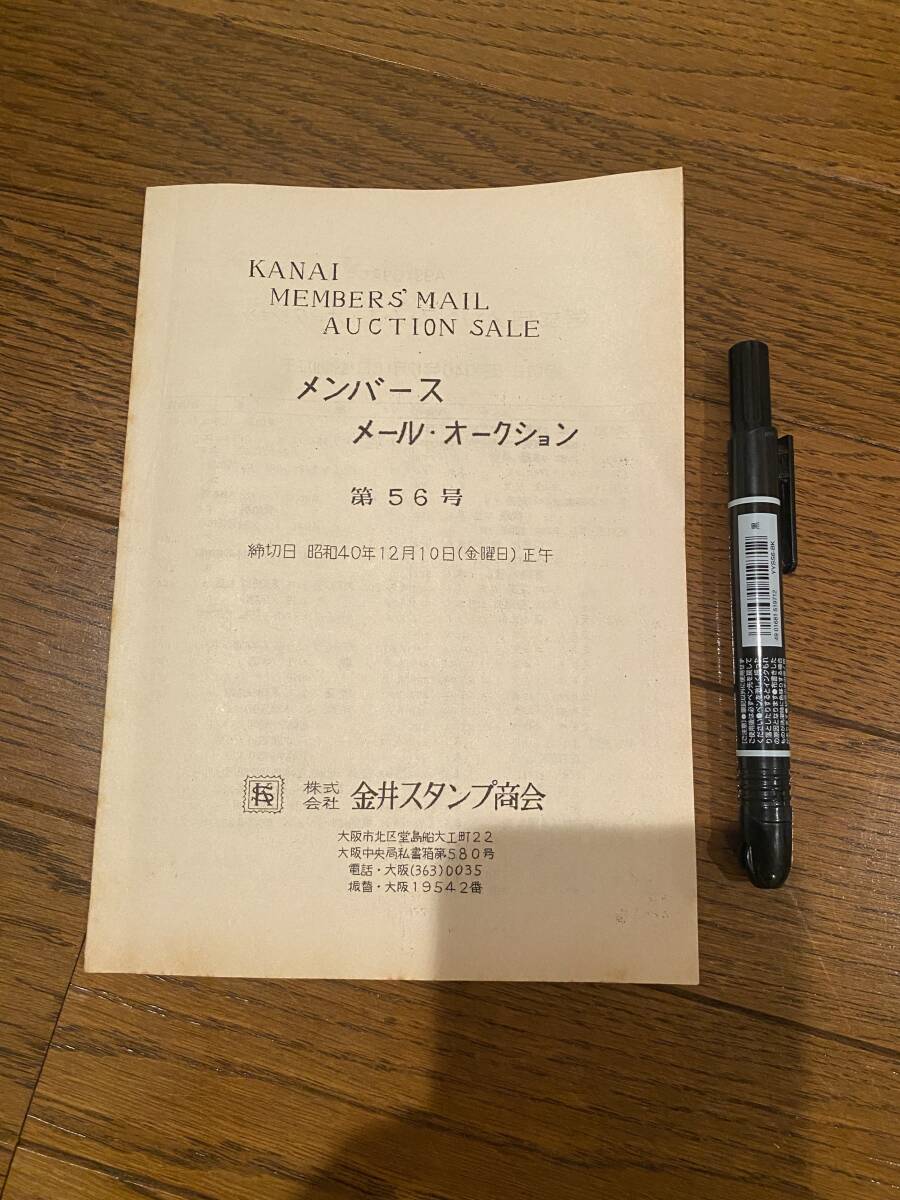 KANAI
MEMBERS' MAIL
AUCTION SALE
メンバース
メール・オークション
第56号
締切日 昭和40年12月10日(金曜日) 正午
株式
会社 金井スタンプ商会
大阪市北区堂島船大工町22
大阪中央局私書箱第580号
電話・大阪(363)0035
振替・大阪19542番
黒
YYSS6-BK
49 01681 519712